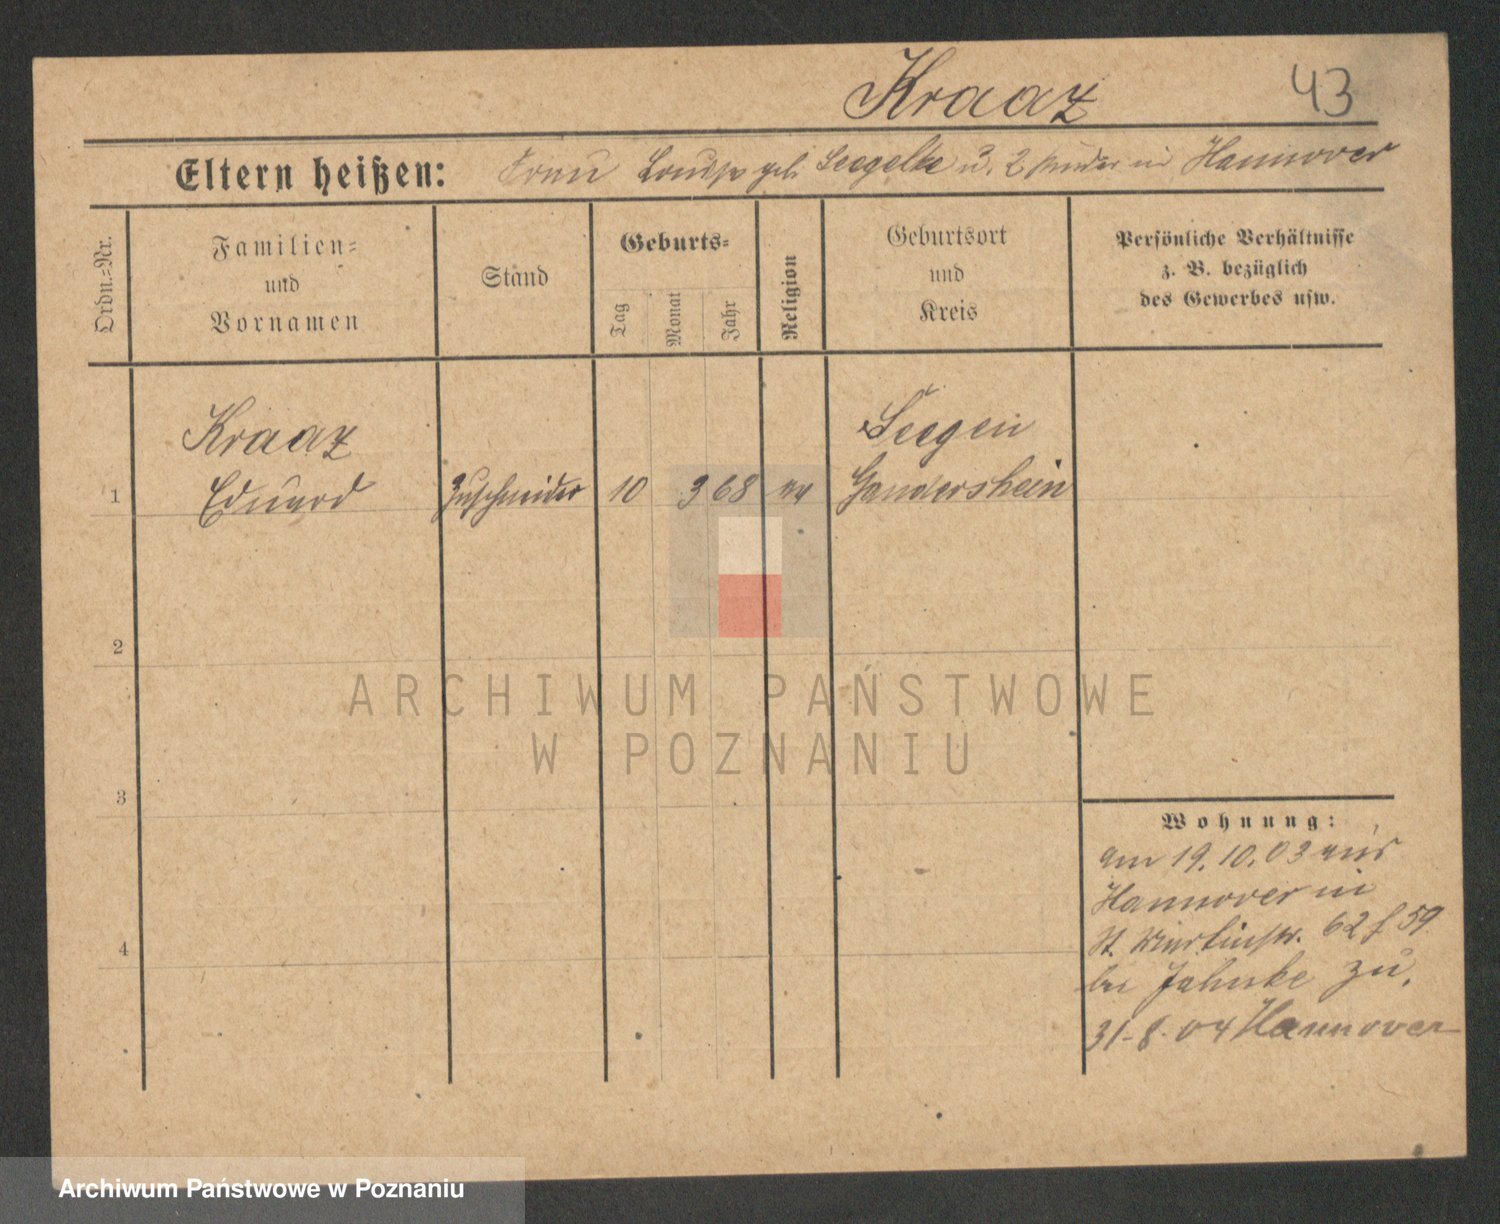 Kraaz 43
Eltern heißen: Frau Louise geb. Seegelke u. 2 Kinder in Hannover
Ordn.=Nr.
Familien=
und
Vornamen
Stand
Geburts=
Tag
Monat
Jahr
Religion
Geburtsort
und
Kreis
Persönliche Verhältnisse
z. B. bezüglich
des Gewerbes usw.
Kraaz
Seegen
1 Eduard Zuschneider 10 3 68 ev Gandersheim
2
3
4
Wohnung:
am 19.10.03 aus
Hannover in
St. Martinstr. 62 59
bei Jahnke zu.
31-8-04 Hannover
ARCHIWUM PAŃSTWOWE
W POZNANIU
Archiwum Państwowe w Poznaniu